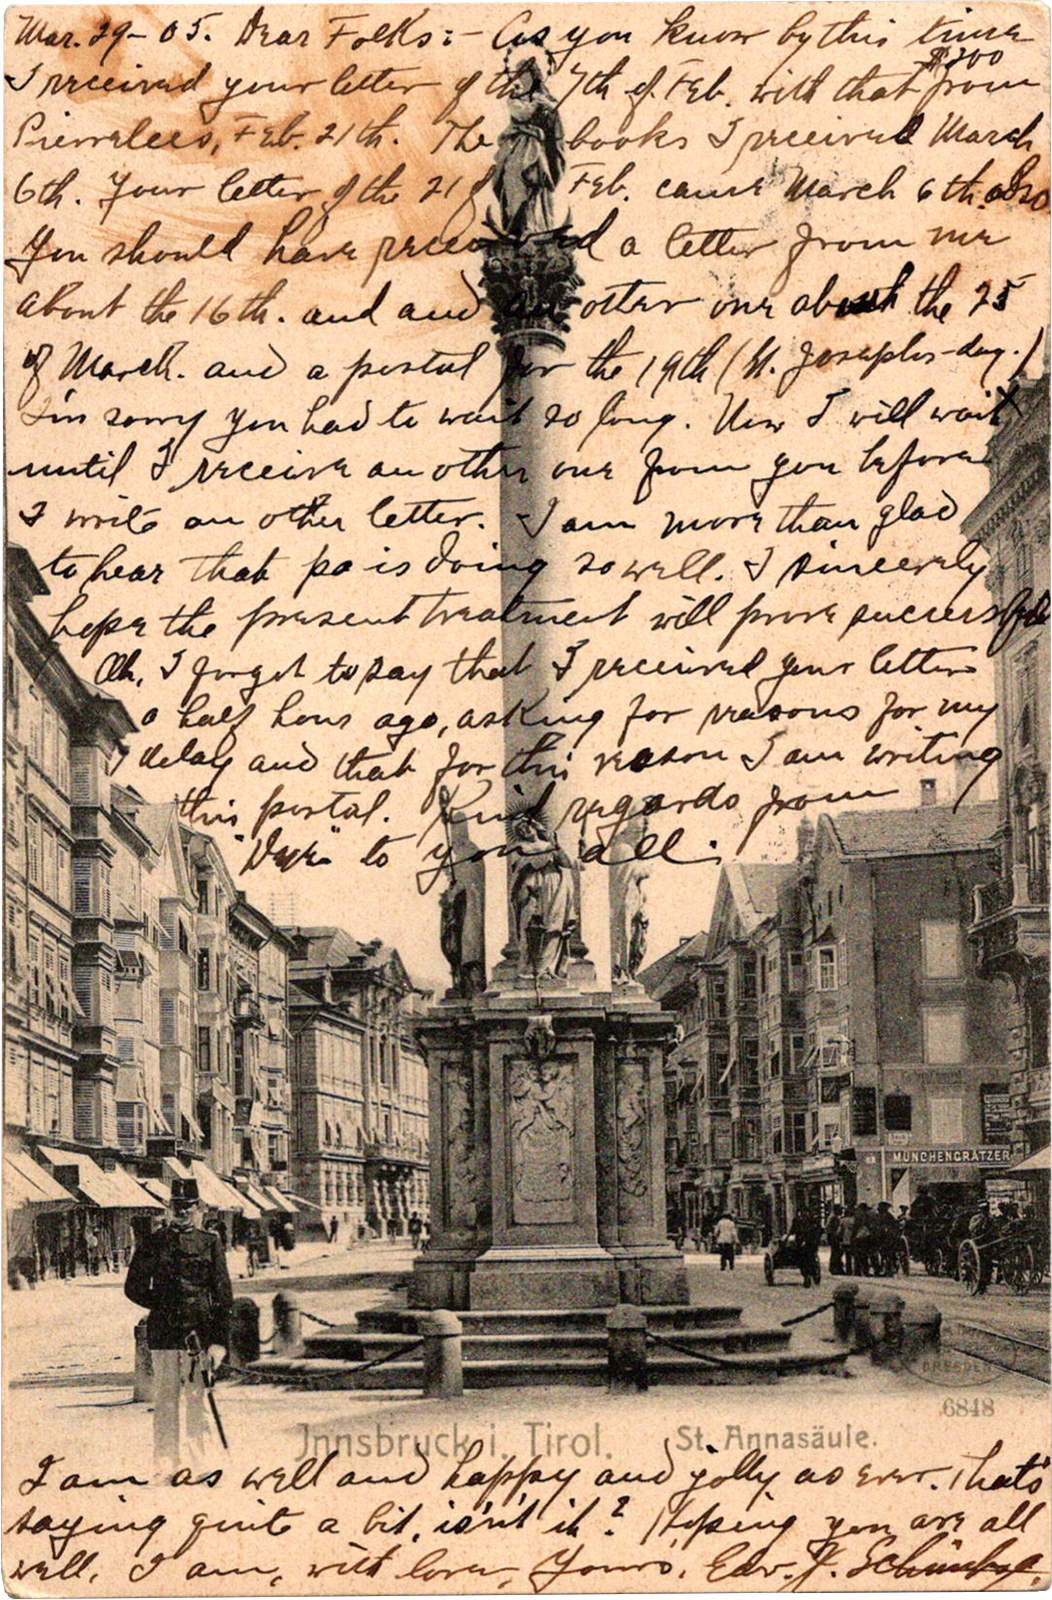 Mar. 29 - 05. Dear Folks: - As you know by this time
$200
I received your letter of the 7th of Feb. with that from
Feb. 21th. The books I received March
6th. Your letter of the 21 of Feb. came March 6th. also
You should have received a letter from me
about the 16th. and and an other one about the 25
of March. and a postal for the 19th (St. Josephs-day.)
I'm sorry you had to wait so long. Now I will wait
until I receive an other one from you before
I write an other letter. I am more than glad
to hear that pa is doing so well. I sincerely
hope the present treatment will prove successful
Oh, I forgot to say that I received your letter
a half hour ago, asking for reasons for my
delay and that for this reason I am writing
this postal. Kind regards from
to you all.
MÜNCHENGRÄTZER
DRESDEN
6848
Innsbruck i. Tirol. St. Annasäule.
I am as well and happy and jolly as ever. That's
saying quite a bit, isn't it? Hoping you are all
well, I am, with love, Yours, Edw. J.